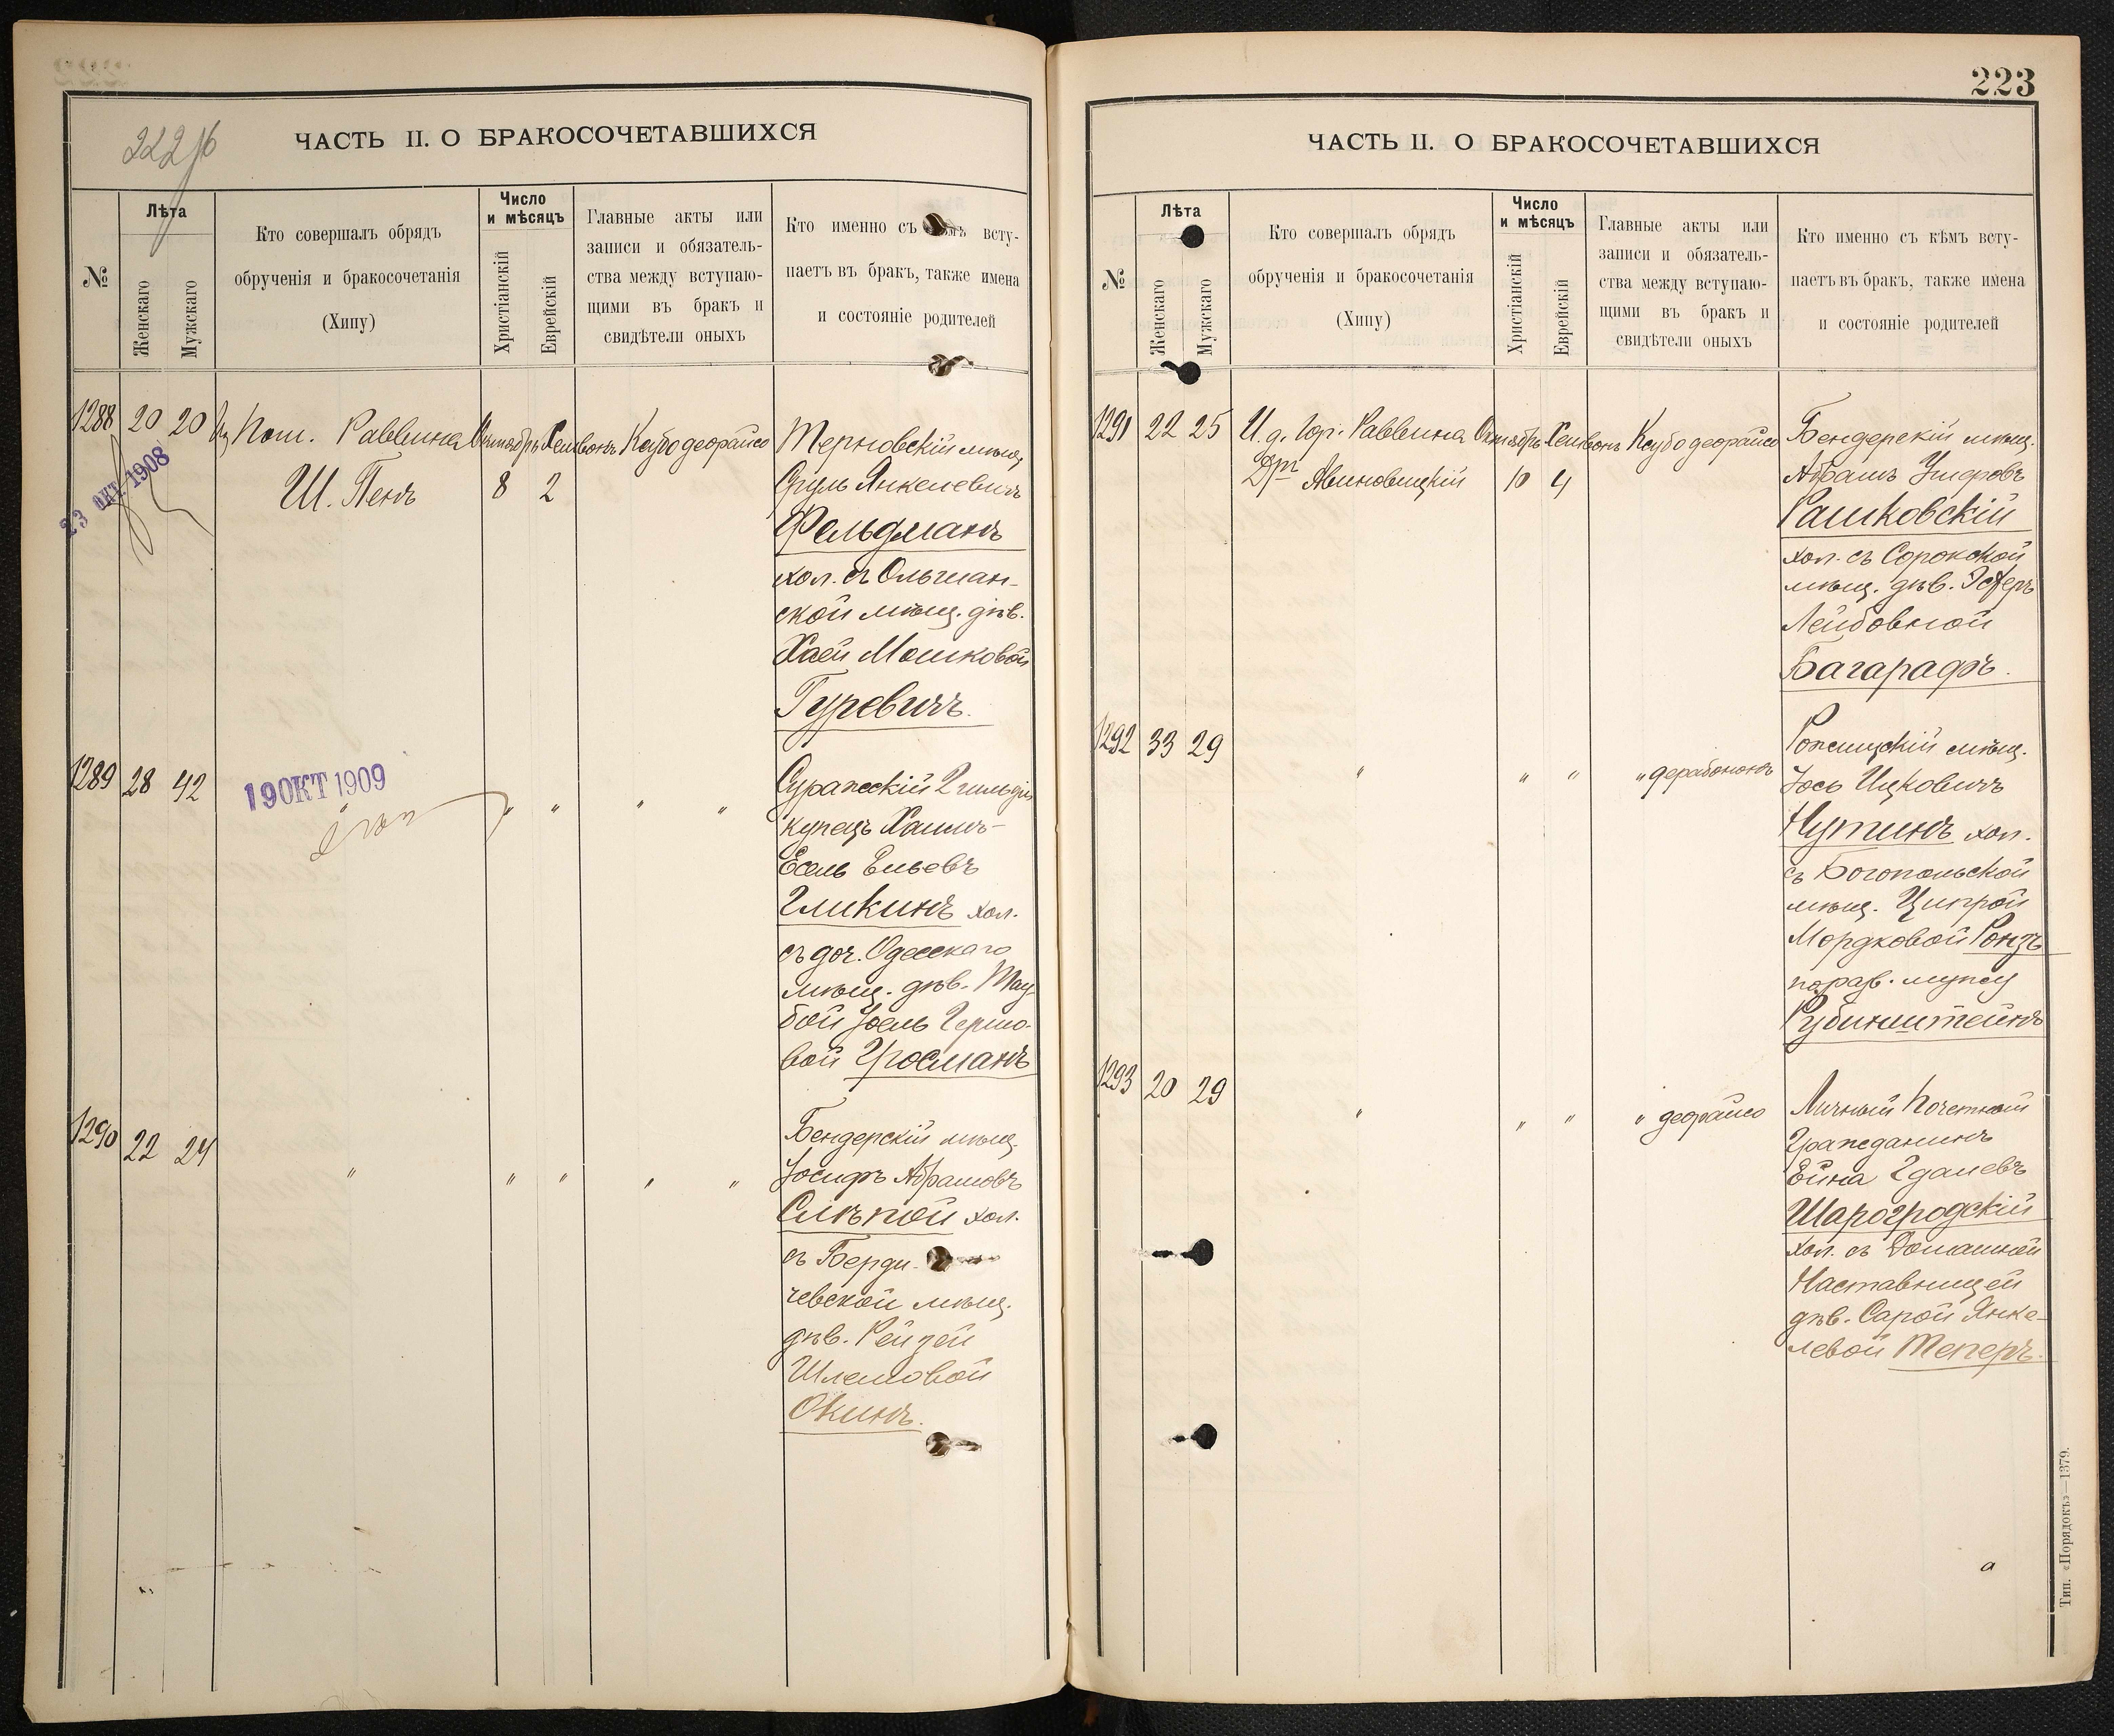 222 б
ЧАСТЬ II. О БРАКОСОЧЕТАВШИХСЯ
№
Лѣта
Женскаго
Мужскаго
Кто совершалъ обрядъ
обрученія и бракосочетанія
(Хипу)
Число
и мѣсяцъ
Христіанскій
Еврейскій
Главные акты или
записи и обязатель-
ства между вступаю-
щими въ бракъ и
свидѣтели оныхъ
Кто именно съ кѣмъ всту-
паетъ въ бракъ, также имена
и состояніе родителей
1288 20 20 Пом. Раввина Октябрь Хешвонъ Ксубо деорайсо
Ш. Пенъ 8 2
23 ОКТ 1908
Терновскій мѣщ.
Сруль Янкелевичъ
Фельдманъ
хол. съ Ольшан-
ской мѣщ. дѣв.
Хаей Мошковой
Гуревичъ.
1289 28 42 " " " "
19 ОКТ 1909
Суражскій 2 гильдіи
купецъ Хаимъ-
Есель Ельевъ
Гликинъ хол.
съ доч. Одесскаго
мѣщ. дѣв. Тау-
бой Іоель Гершо-
вой Гросманъ
1290 22 24 " " " " "
Бендерскій мѣщ.
Іосифъ Абрамовъ
Слѣпой хол.
съ Берди-
чевской мѣщ.
дѣв. Рейзей
Шлемовой
Окинъ.
223
ЧАСТЬ II. О БРАКОСОЧЕТАВШИХСЯ
№
Лѣта
Женскаго
Мужскаго
Кто совершалъ обрядъ
обрученія и бракосочетанія
(Хипу)
Число
и мѣсяцъ
Христіанскій
Еврейскій
Главные акты или
записи и обязатель-
ства между вступаю-
щими въ бракъ и
свидѣтели оныхъ
Кто именно съ кѣмъ всту-
паетъ въ бракъ, также имена
и состояніе родителей
1291 22 25 И. д. Гор. Раввина Октябрь Хешвонъ Ксубо деорайсо
Дръ Авиновицкій 10 4
Бендерскій мѣщ.
Абрамъ Ушеровъ
Рашковскій
хол. съ Сорокской
мѣщ. дѣв. Эстеръ
Лейбовной
Багарафъ.
1292 33 29 " " " " дерабононъ
Рожищскій мѣщ.
Іось Ицковичъ
Нутинъ хол.
съ Богопольской
мѣщ. Ципрой
Мордковой Ронзъ
по разв. мужу
Рубинштейнъ
1293 20 29 " " " " деорайсо
Личный Почетный
Гражданинъ
Ейна Гдалевъ
Шарогродскій
хол. съ Домашней
Наставницей
дѣв. Сарой Янке-
левой Теперъ.
Тип. «Порядокъ»—1379.